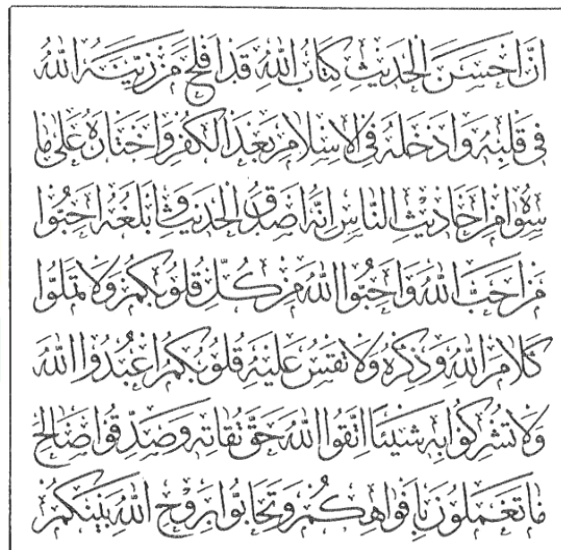 ان احسن الحديث كتاب الله قد افلح من زينه الله
في قلبه وادخله في الاسلام بعد الكفر واختاره على ما
سواه من احاديث الناس انه اصدق الحديث وابلغه احبوا
من احب الله واحبوا الله من كل قلوبكم ولا تملوا
كلام الله وذكره ولا تقس عليه قلوبكم اعبدوا الله
ولا تشركوا به شيئا اتقوا الله حق تقاته وصدقوا صالح
ما تعملون بافواهكم وتحابوا بروح الله بينكم